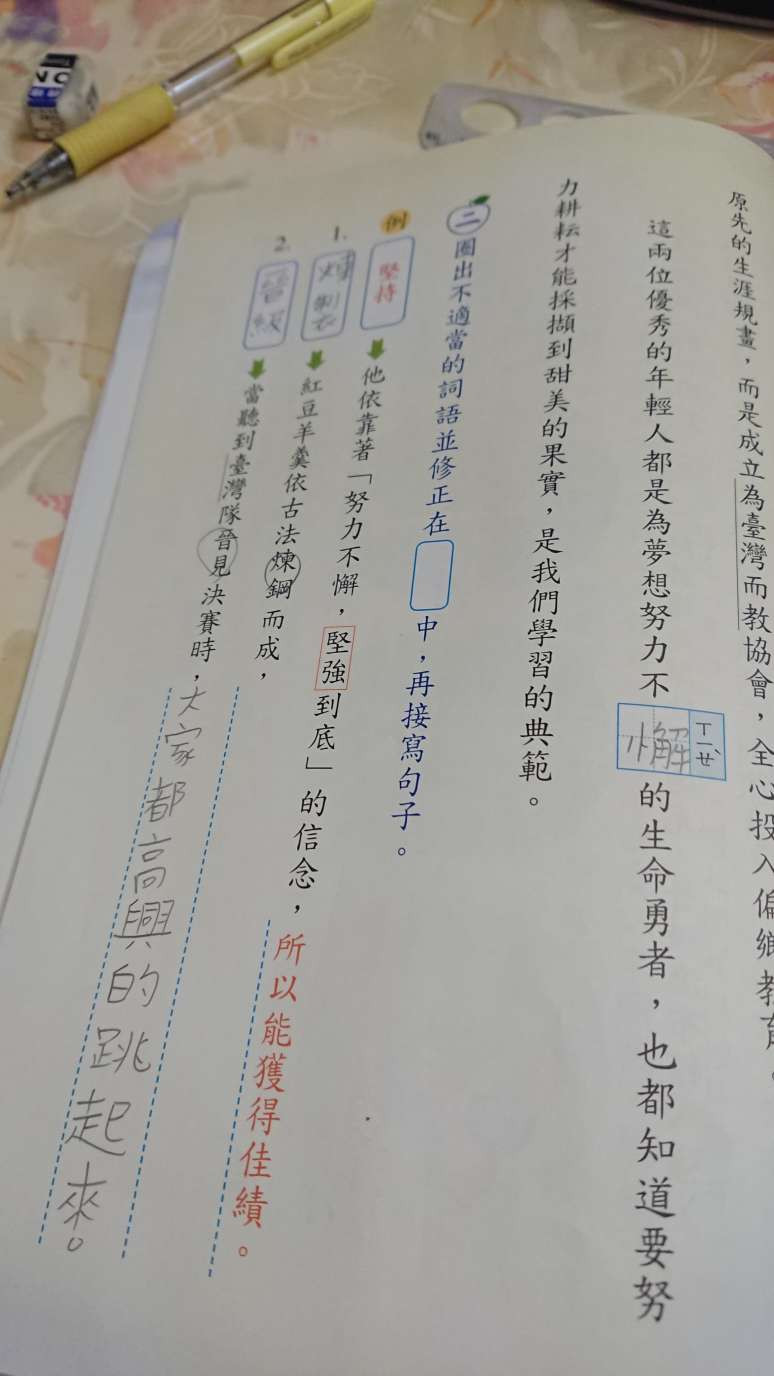 原先的生涯規畫，而是成立為臺灣而教協會，全心投入偏鄉教育。
這兩位優秀的年輕人都是為夢想努力不懈ㄒㄧㄝˋ的生命勇者，也都知道要努
力耕耘才能採擷到甜美的果實，是我們學習的典範。
二 圈出不適當的詞語並修正在 中，再接寫句子。
例 堅持 他依靠著「努力不懈，堅強到底」的信念，所以能獲得佳績。
1. 煉製 紅豆羊羹依古法煉鋼而成，
2. 晉級 當聽到臺灣隊晉見決賽時，大家都高興的跳起來。